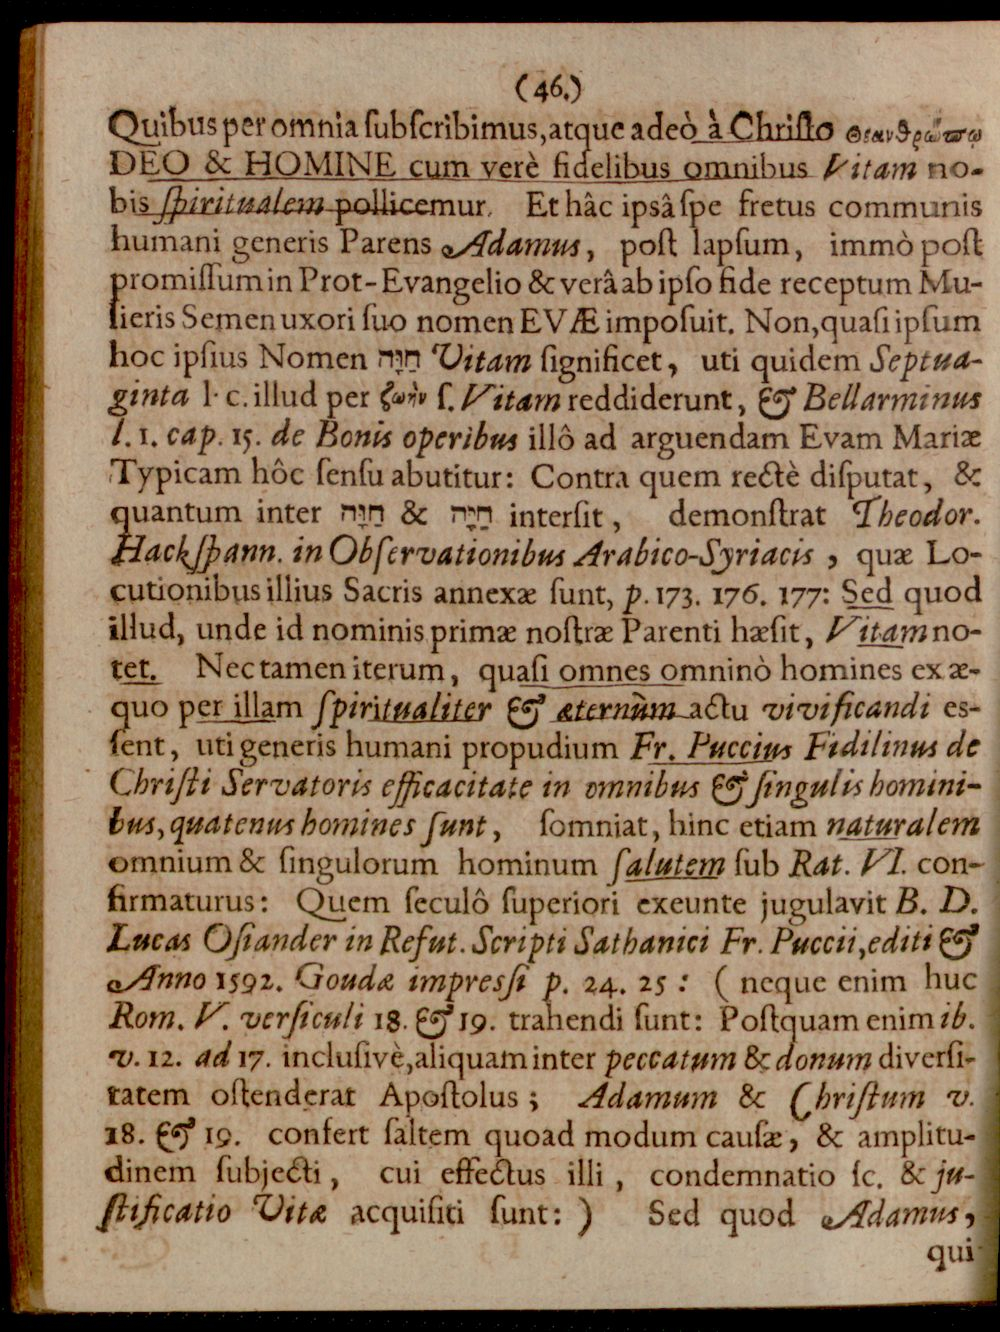 (46.)
Quibus per omnia ſubſcribimus, atque adeò à Chriſto θεανθρώπῳ
DEO & HOMINE cum verè fidelibus omnibus Vitam no-
bis ſpiritualem pollicemur. Et hâc ipsâ ſpe fretus communis
humani generis Parens Adamus, poſt lapſum, immò poſt
promiſſum in Prot-Evangelio & verâ ab ipſo fide receptum Mu-
lieris Semen uxori ſuo nomen EVÆ impoſuit. Non, quaſi ipſum
hoc ipſius Nomen חַוָּה Vitam ſignificet, uti quidem Septua-
ginta l. c. illud per ζωὴν ſ. Vitam reddiderunt, & Bellarminus
l. 1. cap. 15. de Bonis operibus illô ad arguendam Evam Mariæ
Typicam hôc ſenſu abutitur: Contra quem rectè diſputat, &
quantum inter חַוָּה & חַיָּה interſit, demonſtrat Theodor.
Hackſpann. in Obſervationibus Arabico-Syriacis, quæ Lo-
cutionibus illius Sacris annexæ ſunt, p. 173. 176. 177: Sed quod
illud, unde id nominis primæ noſtræ Parenti hæſit, Vitam no-
tet. Nec tamen iterum, quaſi omnes omninò homines ex æ-
quo per illam ſpiritualiter & æternùm actu vivificandi eſ-
ſent, uti generis humani propudium Fr. Puccius Fidilinus de
Chriſti Servatoris efficacitate in omnibus & ſingulis homini-
bus, quatenus homines ſunt, ſomniat, hinc etiam naturalem
omnium & ſingulorum hominum ſalutem ſub Rat. VI. con-
firmaturus: Quem ſeculô ſuperiori exeunte jugulavit B. D.
Lucas Oſiander in Refut. Scripti Sathanici Fr. Puccii, editi &
Anno 1592. Goudæ impreſſi p. 24. 25: ( neque enim huc
Rom. V. verſiculi 18. & 19. trahendi ſunt: Poſtquam enim ib.
v. 12. ad 17. incluſivè, aliquam inter peccatum & donum diverſi-
tatem oſtenderat Apoſtolus; Adamum & Chriſtum v.
18. & 19. confert ſaltem quoad modum cauſæ, & amplitu-
dinem ſubjecti, cui effectus illi, condemnatio ſc. & ju-
ſtificatio Vitæ acquiſiti ſunt: ) Sed quod Adamus,
qui